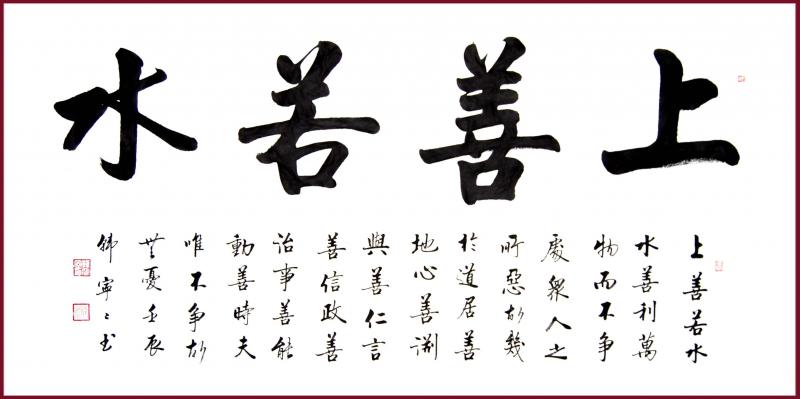 上善若水
上善若水
水善利萬
物而不争
處衆人之
所惡故幾
於道居善
地心善渊
與善仁言
善信政善
治事善能
動善時夫
唯不争故
無憂壬辰
韩寧〻书